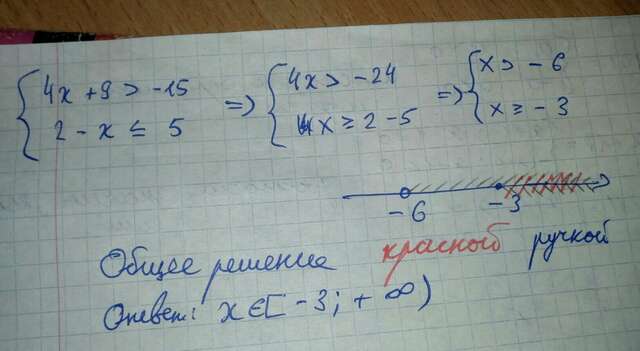 { 4x + 9 > -15 => { 4x > -24 => { x > -6
2 - x ≤ 5 x ≥ 2 - 5 x ≥ -3
-6 -3
Общее решение красной ручкой
Ответ: x ∈ [-3; +∞)